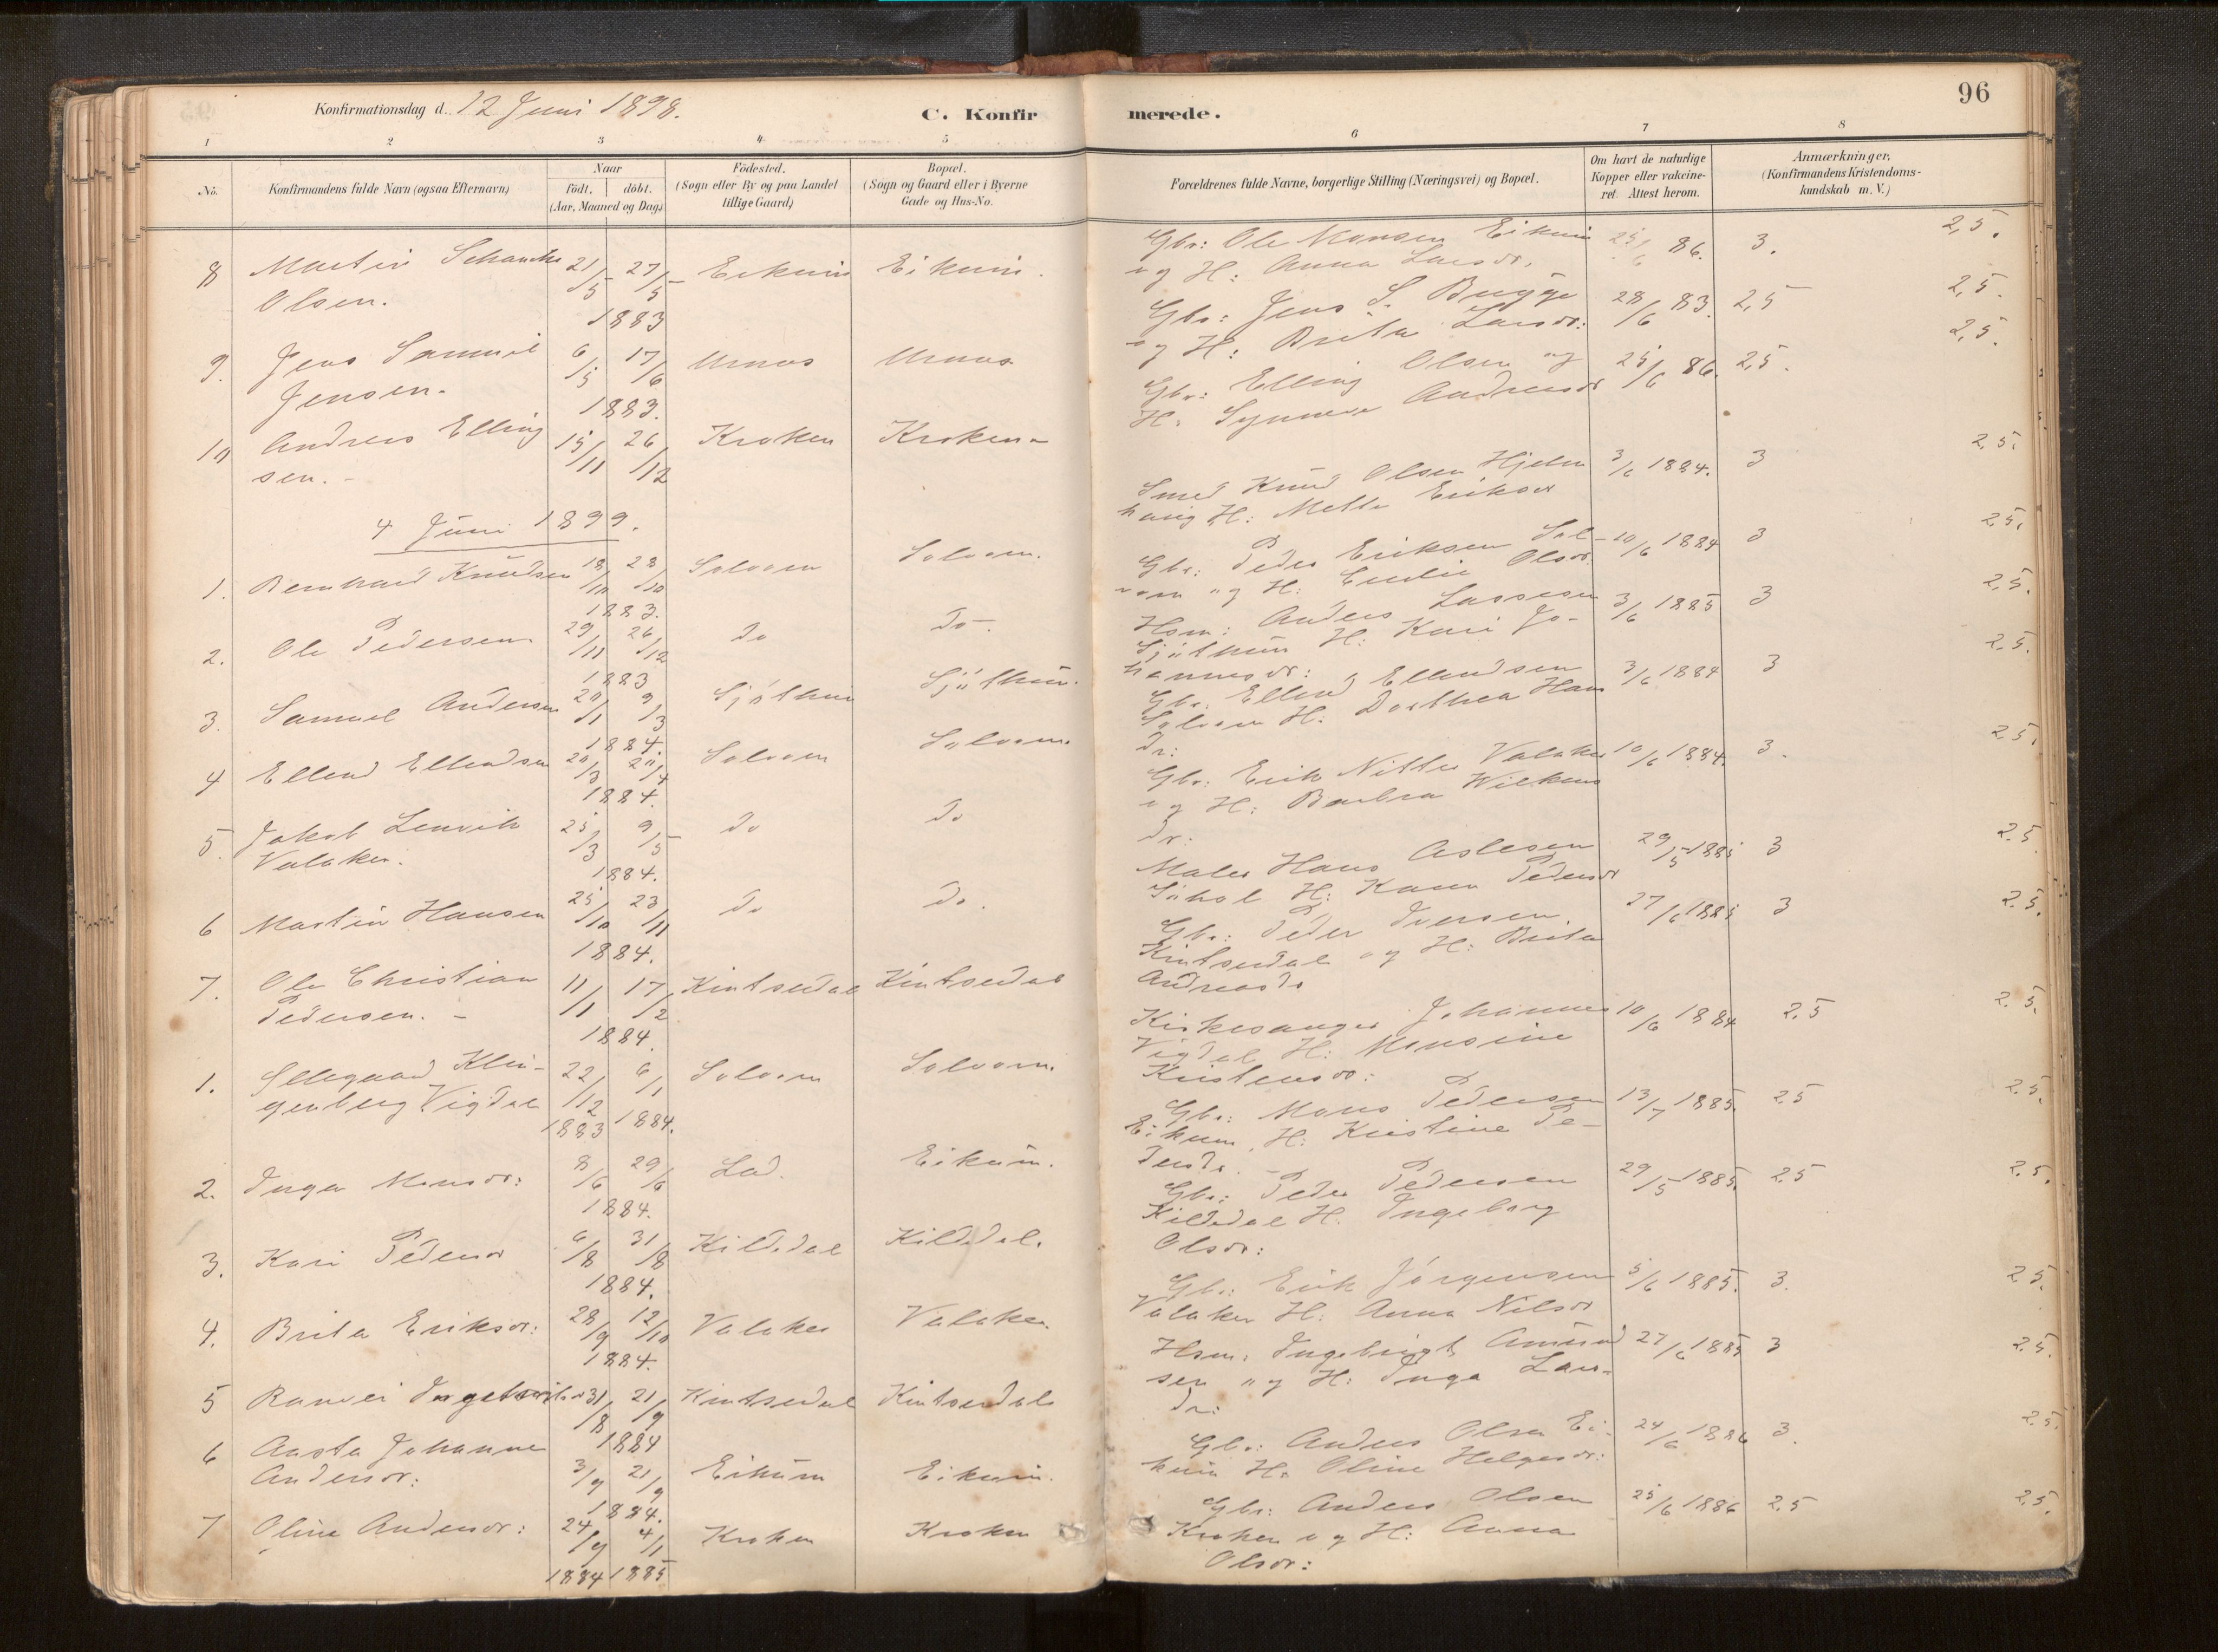 96
Konfirmationsdag d. 12 Juni 1898.
C. Konfirmerede.
1 2 3 4 5 6 7 8
No.
Konfirmandens fulde Navn (ogsaa Efternavn)
Naar
födt. döbt.
(Aar, Maaned og Dag)
Födested.
(Sogn eller By og paa Landet
tillige Gaard)
Bopæl.
(Sogn og Gaard eller i Byerne
Gade og Hus-No.
Forældrenes fulde Navne, borgerlige Stilling (Næringsvei) og Bopæl.
Om havt de naturlige
Kopper eller vakcine-
ret. Attest herom.
Anmærkninger,
(Konfirmandens Kristendoms-
kundskab m. V.)
8 Martin Schanche 21/5 27/5 Eikum Eikum. Gbr: Ole Monsen Eikum 25/6 86. 3. 2,5.
Olsen. og H: Anna Larsdr.
1883
9. Jens Samuel 6/5 17/6 Urnes Urnes Gbr: Jens S. Bugge 28/6 83. 2,5 2,5.
Jensen. og H: Brita Larsdr:
1883.
10 Andreas Elling 15/11 26/12 Kroken Kroken Gbr: Elling Olsen og 25/6 86. 2,5. 2,5.
sen. - H. Synneve Andreasdr
4 Juni 1899.
1. Bernhard Knudsen 18/10 28/10 Solvorn Solvorn. Smed Knud Olsen Hjelm 3/6 1884. 3 2.5.
haug H: Mette Eriksdr
1883.
2. Ole Pedersen 29/11 26/12 do do. Gbr: Peder Eriksen Sol- 10/6 1884 3 2.5.
vorn og H: Emilie Olsdr.
1883
3. Samuel Andersen 20/1 9/3 Sjøthun Sjøthun. Hsm: Anders Lassesen 3/6 1885 3 2.5.
Sjøthun H: Kari Jo-
hannesdr:
1884.
4 Ellend Ellendsen 20/3 20/4 Solvorn Solvorn. Gbr. Ellend Ellendsen 3/6 1884 3 2.5.
Solvorn H: Dorthea Hans
dr:
1884.
5. Jakob Lenvik 25/3 9/5 do do Gbr: Erik Nitter Valaker 10/6 1884. 3. 2.5.
Valaker. og H: Barbra Wilkens
dr:
1884.
6 Martin Hansen 25/10 23/11 do do. Maler Hans Aslesen 29/5 1885 3 2.5.
H: Karen Pedersdr
1884.
7. Ole Christian 11/1 17/2 Kintsedal Kintsedal Gbr: Peder Iversen. 27/6 1885 3 2.5.
Pedersen. - Kintsedal og H: Brita
Andreasdr
1884.
1. Ellegaard Klin- 22/12 6/1 Solvorn Solvorn. Kirkesanger Johannes 10/6 1884 2.5 2.5.
genberg Vigdal Vigdal H: Monsine
Kristensdr:
1883 1884.
2. Inga Monsdr: 8/6 29/6 Lad. Eikum. Gbr: Mons Pedersen 13/7 1885. 2.5 2.5.
Eikum, H: Kristine Pe-
dersdr. -
1884.
3. Kari Pedersdr 6/8 31/8 Kildedal Kildedal. Gbr: Peder Pedersen 29/5 1885. 2.5 2.5.
Kildedal H. Ingeborg
Olsdr:
1884.
4. Brita Eriksdr: 28/9 12/10 Valaker Valaker. Gbr: Erik Jørgensen 5/6 1885. 3. 2.5.
Valaker H: Anna Nilsdr
1884.
5 Ranvei 31/8 21/9 Kintsedal Kintsedal Hsm. Ingebrigt Amund 27/6 1885 3 2.5.
sen og H: Inga Lars-
dr:
1884
6 Aasta Johanne 3/9 21/9 Eikum Eikum. Gbr: Anders Olsen Ei- 24/6 1886 3. 2.5.
Andersdr: kum H: Oline Helgesdr:
1884.
7 Oline Andersdr: 24/9 4/1 Kroken Kroken Gbr: Anders Olsen 25/6 1886 2,5 2.5.
Kroken og H: Anna
Olsdr:
1884 1885